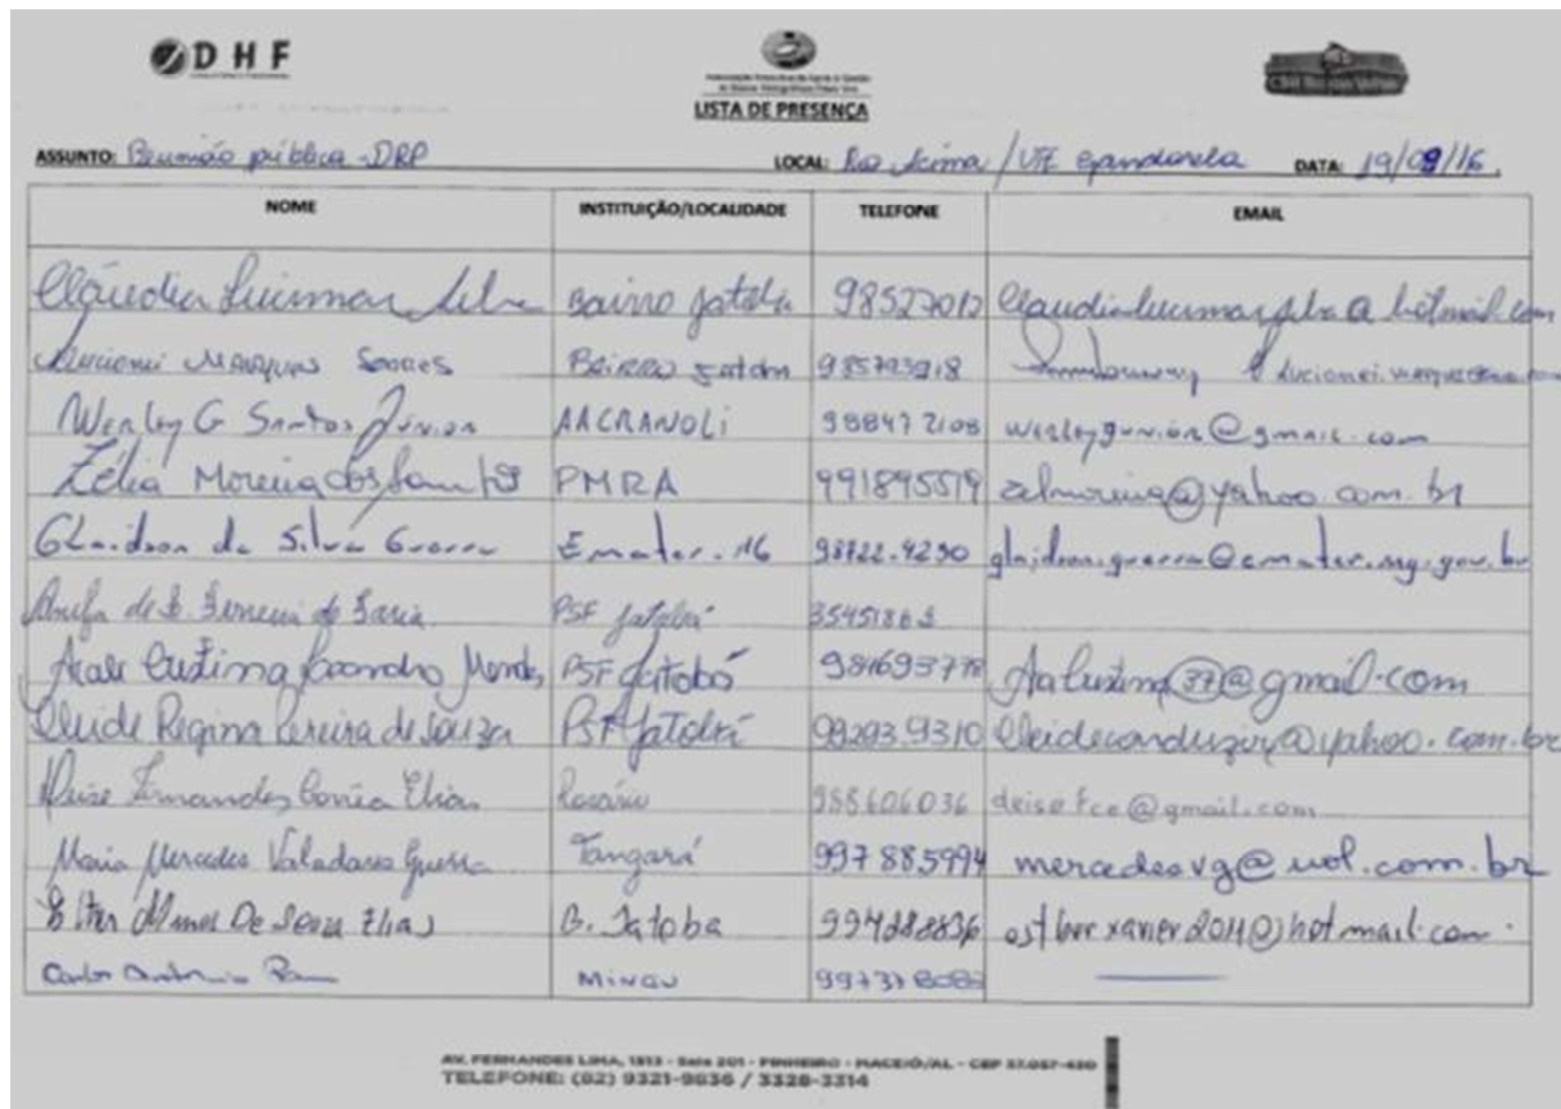 DHF
LISTA DE PRESENÇA
ASSUNTO: Reunião pública - DRP LOCAL: Rio Acima / UTE Gandarela DATA: 19/09/16.
NOME INSTITUIÇÃO/LOCALIDADE TELEFONE EMAIL
Cláudia Lucimar Silva Bairro Jatobá 98527012 Claudialucimarsilva@hotmail.com
Lucionei Marques Soares Bairro 985793918
Werley G Santos Júnior AACRANOLI 98847 2108 werleyjunior@gmail.com
Zélia Moreira dos Santos PMRA 991895519 zelmoreira@yahoo.com.br
Glaidson da Silva Guerra Emater. MG 98722.4290 glaidson.guerra@emater.mg.gov.br
de Faria PSF Jatobá
Cristina Mendes PSF Jatobá 981693778 @gmail.com
Cleide Regina Pereira de Souza PSF Jatobá 99293.9310 @yahoo.com.br
Deise Fernandes Corrêa Elias Rosário 988606036 deisefce@gmail.com
Maria Mercedes Valadares Guerra Tangará 997885994 mercedesvg@uol.com.br
De Souza Elias B. Jatoba
Carlos Antonio
AV. FERNANDES LIMA, 1513 - Sala 201 - PINHEIRO - MACEIÓ/AL - CEP 57.057-450
TELEFONE: (82) 9321-9836 / 3328-3314